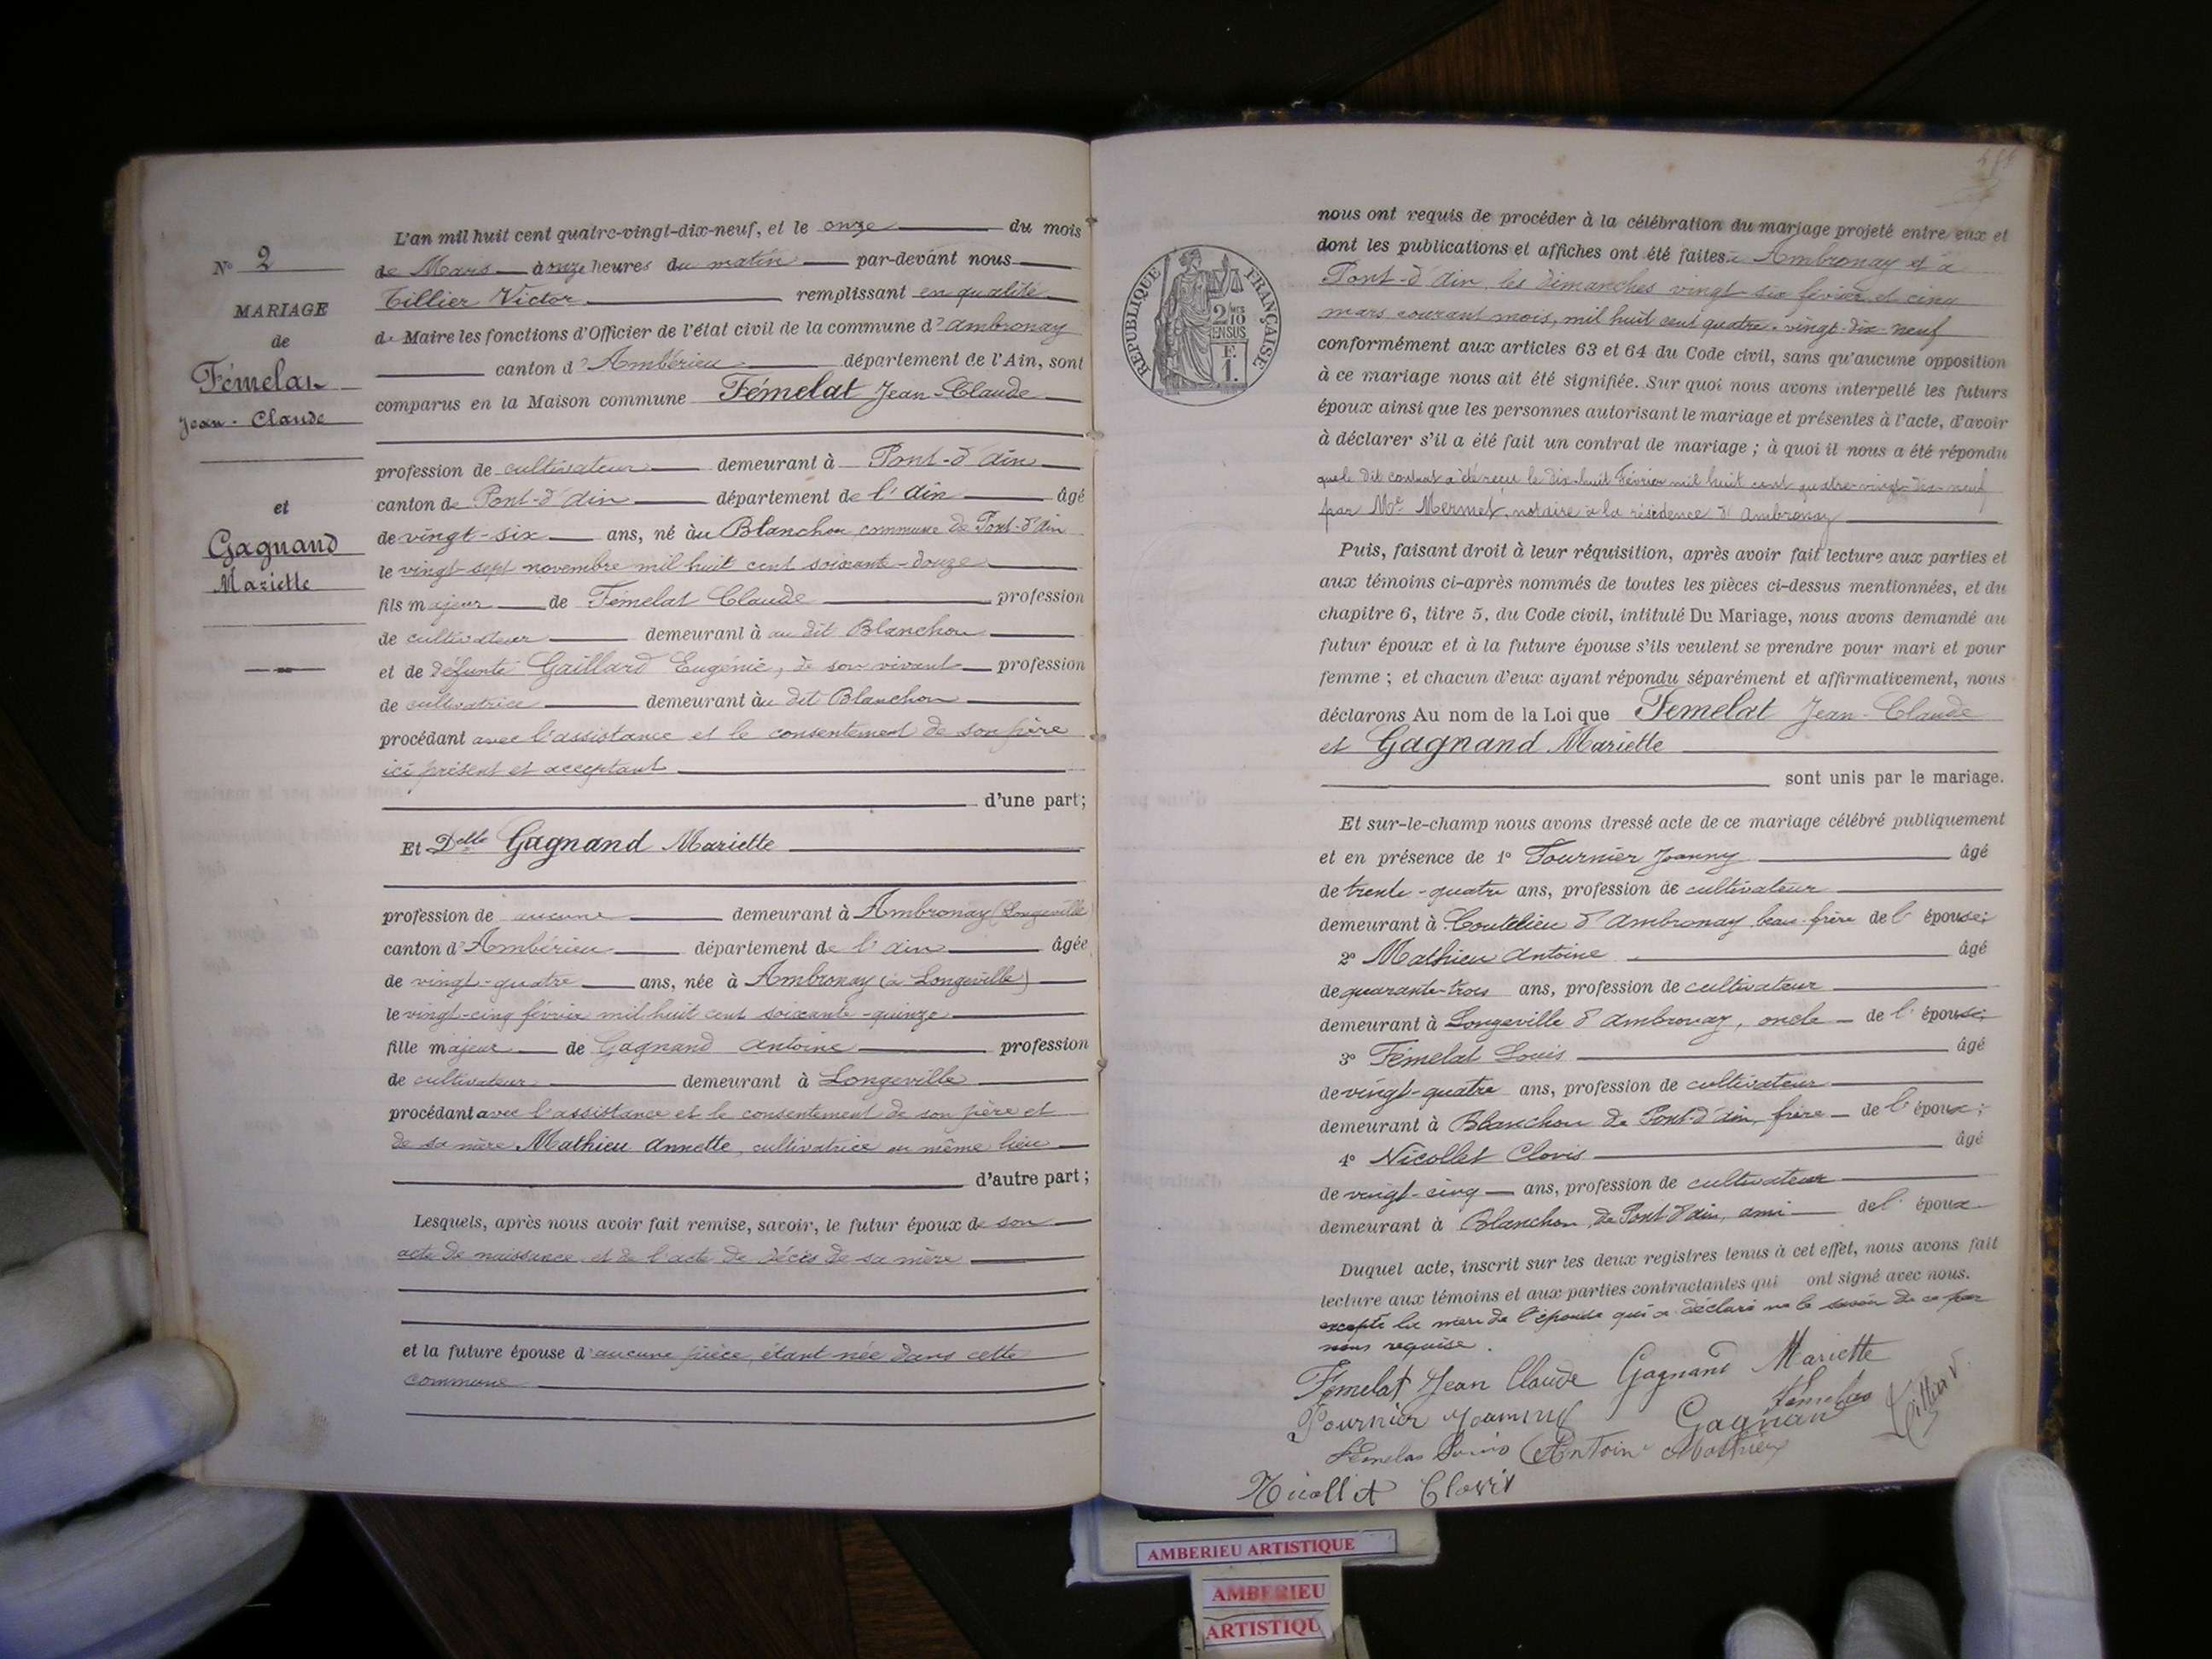 N° 2
MARIAGE
de
Fémelat
Jean-Claude
et
Gagnand
Mariette
L'an mil huit cent quatre-vingt-dix-neuf, et le onze du mois
de Mars à onze heures du matin par-devant nous
Tillier Victor remplissant en qualité
de Maire les fonctions d'Officier de l'état civil de la commune d'Ambronay
canton d'Ambérieu département de l'Ain, sont
comparus en la Maison commune Fémelat Jean-Claude
profession de cultivateur demeurant à Pont-d'Ain
canton de Pont-d'Ain département de l'Ain âgé
de vingt-six ans, né au Blanchon commune de Pont-d'Ain
le vingt-sept novembre mil huit cent soixante-douze
fils majeur de Fémelat Claude profession
de cultivateur demeurant à au dit Blanchon
et de défunte Gaillard Eugénie, de son vivant profession
de cultivatrice demeurant au dit Blanchon
procédant avec l'assistance et le consentement de son père
ici présent et acceptant
d'une part;
Et Delle Gagnand Mariette
profession de aucune demeurant à Ambronay (Longeville)
canton d'Ambérieu département de l'Ain âgée
de vingt-quatre ans, née à Ambronay (à Longeville)
le vingt-cinq février mil huit cent soixante-quinze
fille majeur de Gagnand Antoine profession
de cultivateur demeurant à Longeville
procédant avec l'assistance et le consentement de son père et
de sa mère Mathieu Annette, cultivatrice au même lieu
d'autre part;
Lesquels, après nous avoir fait remise, savoir, le futur époux de son
acte de naissance et de l'acte de décès de sa mère
et la future épouse d'aucune pièce, étant née dans cette
commune
RÉPUBLIQUE FRANÇAISE
2/10
EN SUS
F.
1.
nous ont requis de procéder à la célébration du mariage projeté entre eux et
dont les publications et affiches ont été faites à Ambronay et à
Pont-d'Ain, les dimanches vingt-six février et cinq
mars courant mois, mil huit cent quatre-vingt-dix-neuf
conformément aux articles 63 et 64 du Code civil, sans qu'aucune opposition
à ce mariage nous ait été signifiée. Sur quoi nous avons interpellé les futurs
époux ainsi que les personnes autorisant le mariage et présentes à l'acte, d'avoir
à déclarer s'il a été fait un contrat de mariage; à quoi il nous a été répondu
que le dit contrat a été reçu le dix-huit Février mil huit cent quatre-vingt-dix-neuf
par Me Mermet, notaire à la résidence d'Ambronay
Puis, faisant droit à leur réquisition, après avoir fait lecture aux parties et
aux témoins ci-après nommés de toutes les pièces ci-dessus mentionnées, et du
chapitre 6, titre 5, du Code civil, intitulé Du Mariage, nous avons demandé au
futur époux et à la future épouse s'ils veulent se prendre pour mari et pour
femme; et chacun d'eux ayant répondu séparément et affirmativement, nous
déclarons Au nom de la Loi que Femelat Jean-Claude
et Gagnand Mariette
sont unis par le mariage.
Et sur-le-champ nous avons dressé acte de ce mariage célébré publiquement
et en présence de 1° Fournier Joanny âgé
de trente-quatre ans, profession de cultivateur
demeurant à Coutelieu d'Ambronay beau-frère de l'épouse;
2° Mathieu Antoine âgé
de quarante-trois ans, profession de cultivateur
demeurant à Longeville d'Ambronay, oncle de l'épouse;
3° Fémelat Louis âgé
de vingt-quatre ans, profession de cultivateur
demeurant à Blanchon de Pont-d'Ain, frère de l'époux;
4° Nicollet Clovis âgé
de vingt-cinq ans, profession de cultivateur
demeurant à Blanchon, de Pont-d'Ain, ami de l'époux
Duquel acte, inscrit sur les deux registres tenus à cet effet, nous avons fait
lecture aux témoins et aux parties contractantes qui ont signé avec nous.
excepté la mère de l'épouse qui a déclaré ne le savoir de ce par
nous requise.
Fémelat Jean Claude Gagnand Mariette
Fournier Joanny Gagnan Femelas Tillier V.
Femelas Louis Antoine Mathieu
Nicollet Clovis
AMBERIEU ARTISTIQUE
AMBERIEU
ARTISTIQU